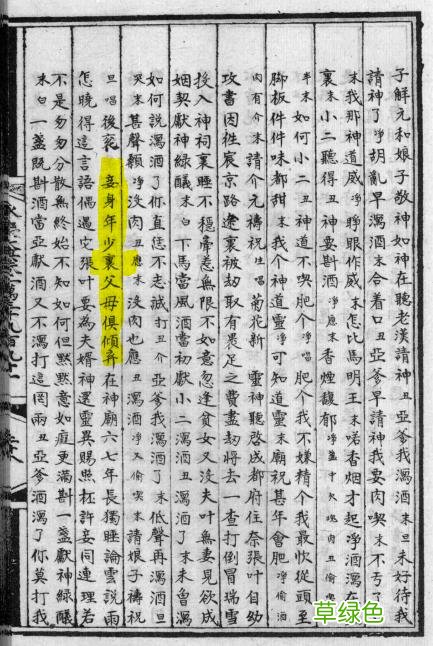 子解元和娘子敬神如神在聽老漢請神丑亞爹我瀉酒末旦未好待我
請神了淨胡亂早瀉酒末合着口丑亞爹早請神我要肉喫末不亏了
末我那神道威淨睜眼作威末怎比馬明王末喏香烟才起淨酒瀉在
裏末小二聽得丑神要斟酒淨應末香煙馥郁
半末如何小二丑神道不喫肥个淨唱肥个我不嫌精个我最忺從頭至
脚板件件味都甜末我个神道靈淨可知道靈末廟祝甚年會肥淨偷酒
肉有介末請介元禱祝生唱菊花新靈神聽啓成都府住奈張叶自幼
攻書因往宸京路途裏被劫取有裝足之費盡劫將去一查打倒冒瑞雪
投入神祠裏睡不穩惹無限不如意忽逢貧女又沒夫叶無妻見欲成
姻契獻神綠醑末白下馬當風酒當初獻小二瀉酒丑瀉酒了末未曾瀉
如何說瀉酒了你直恁不志誠打丑介亞爹我瀉酒了末低聲再瀉酒旦
末甚聲頼淨沒肉丑應末沒肉也應丑瀉酒淨又偷喫末請娘子禱祝
旦唱後衮妾身年少裏父母俱傾弃在神廟六七年長獨睡論雲說雨
怎曉得這言語偶遇它張叶要為夫婿神還靈異賜照杯許妾同連理若
不是匆匆分散無終始不知如何但黙黙意如癡更滿斟一盞獻神綠醑
末白一盞旣斟酒當亞獻酒又不瀉打這囘丑亞爹酒瀉了你莫打我
草绿色